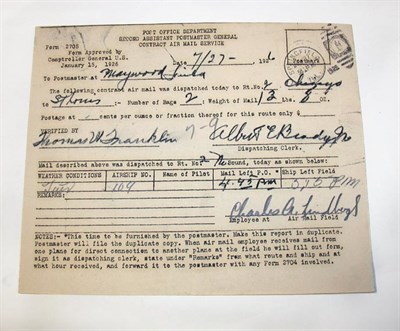 POST OFFICE DEPARTMENT
SECOND ASSISTANT POSTMASTER GENERAL
CONTRACT AIR MAIL SERVICE
Form 2705
Form Approved by
Comptroller General U.S.
January 15, 1926
Date 7/27- 192
Postmark
To Postmaster at Maywood
The following contract air mail was dispatched today to Rt. No. 2 Chicago
to St Louis - Number of Bags 2 Weight of Mail 3 Lbs 8 Oz.
Postage at cents per ounce or fraction thereof for this route only $
VERIFIED BY
Thomas W Franklin
Dispatching Clerk.
Mail described above was dispatched to Rt. No. 2 Bound, today as shown below:
WEATHER CONDITIONS AIRSHIP NO. Name of Pilot Mail Left P.O. Ship Left Field
Fair 109 4.45 PM PM
REMARKS:
Charles A. Lindbergh
Employee at Air Mail Field
NOTES:- "This time to be furnished by the postmaster. Make this report in duplicate.
Postmaster will file the duplicate copy. When air mail employee receives mail from
one plane for direct connection to another plane at the field he will fill out form,
sign it as dispatching clerk, state under "Remarks" from what route and ship and at
what hour received, and forward it to the postmaster with any Form 2704 involved.